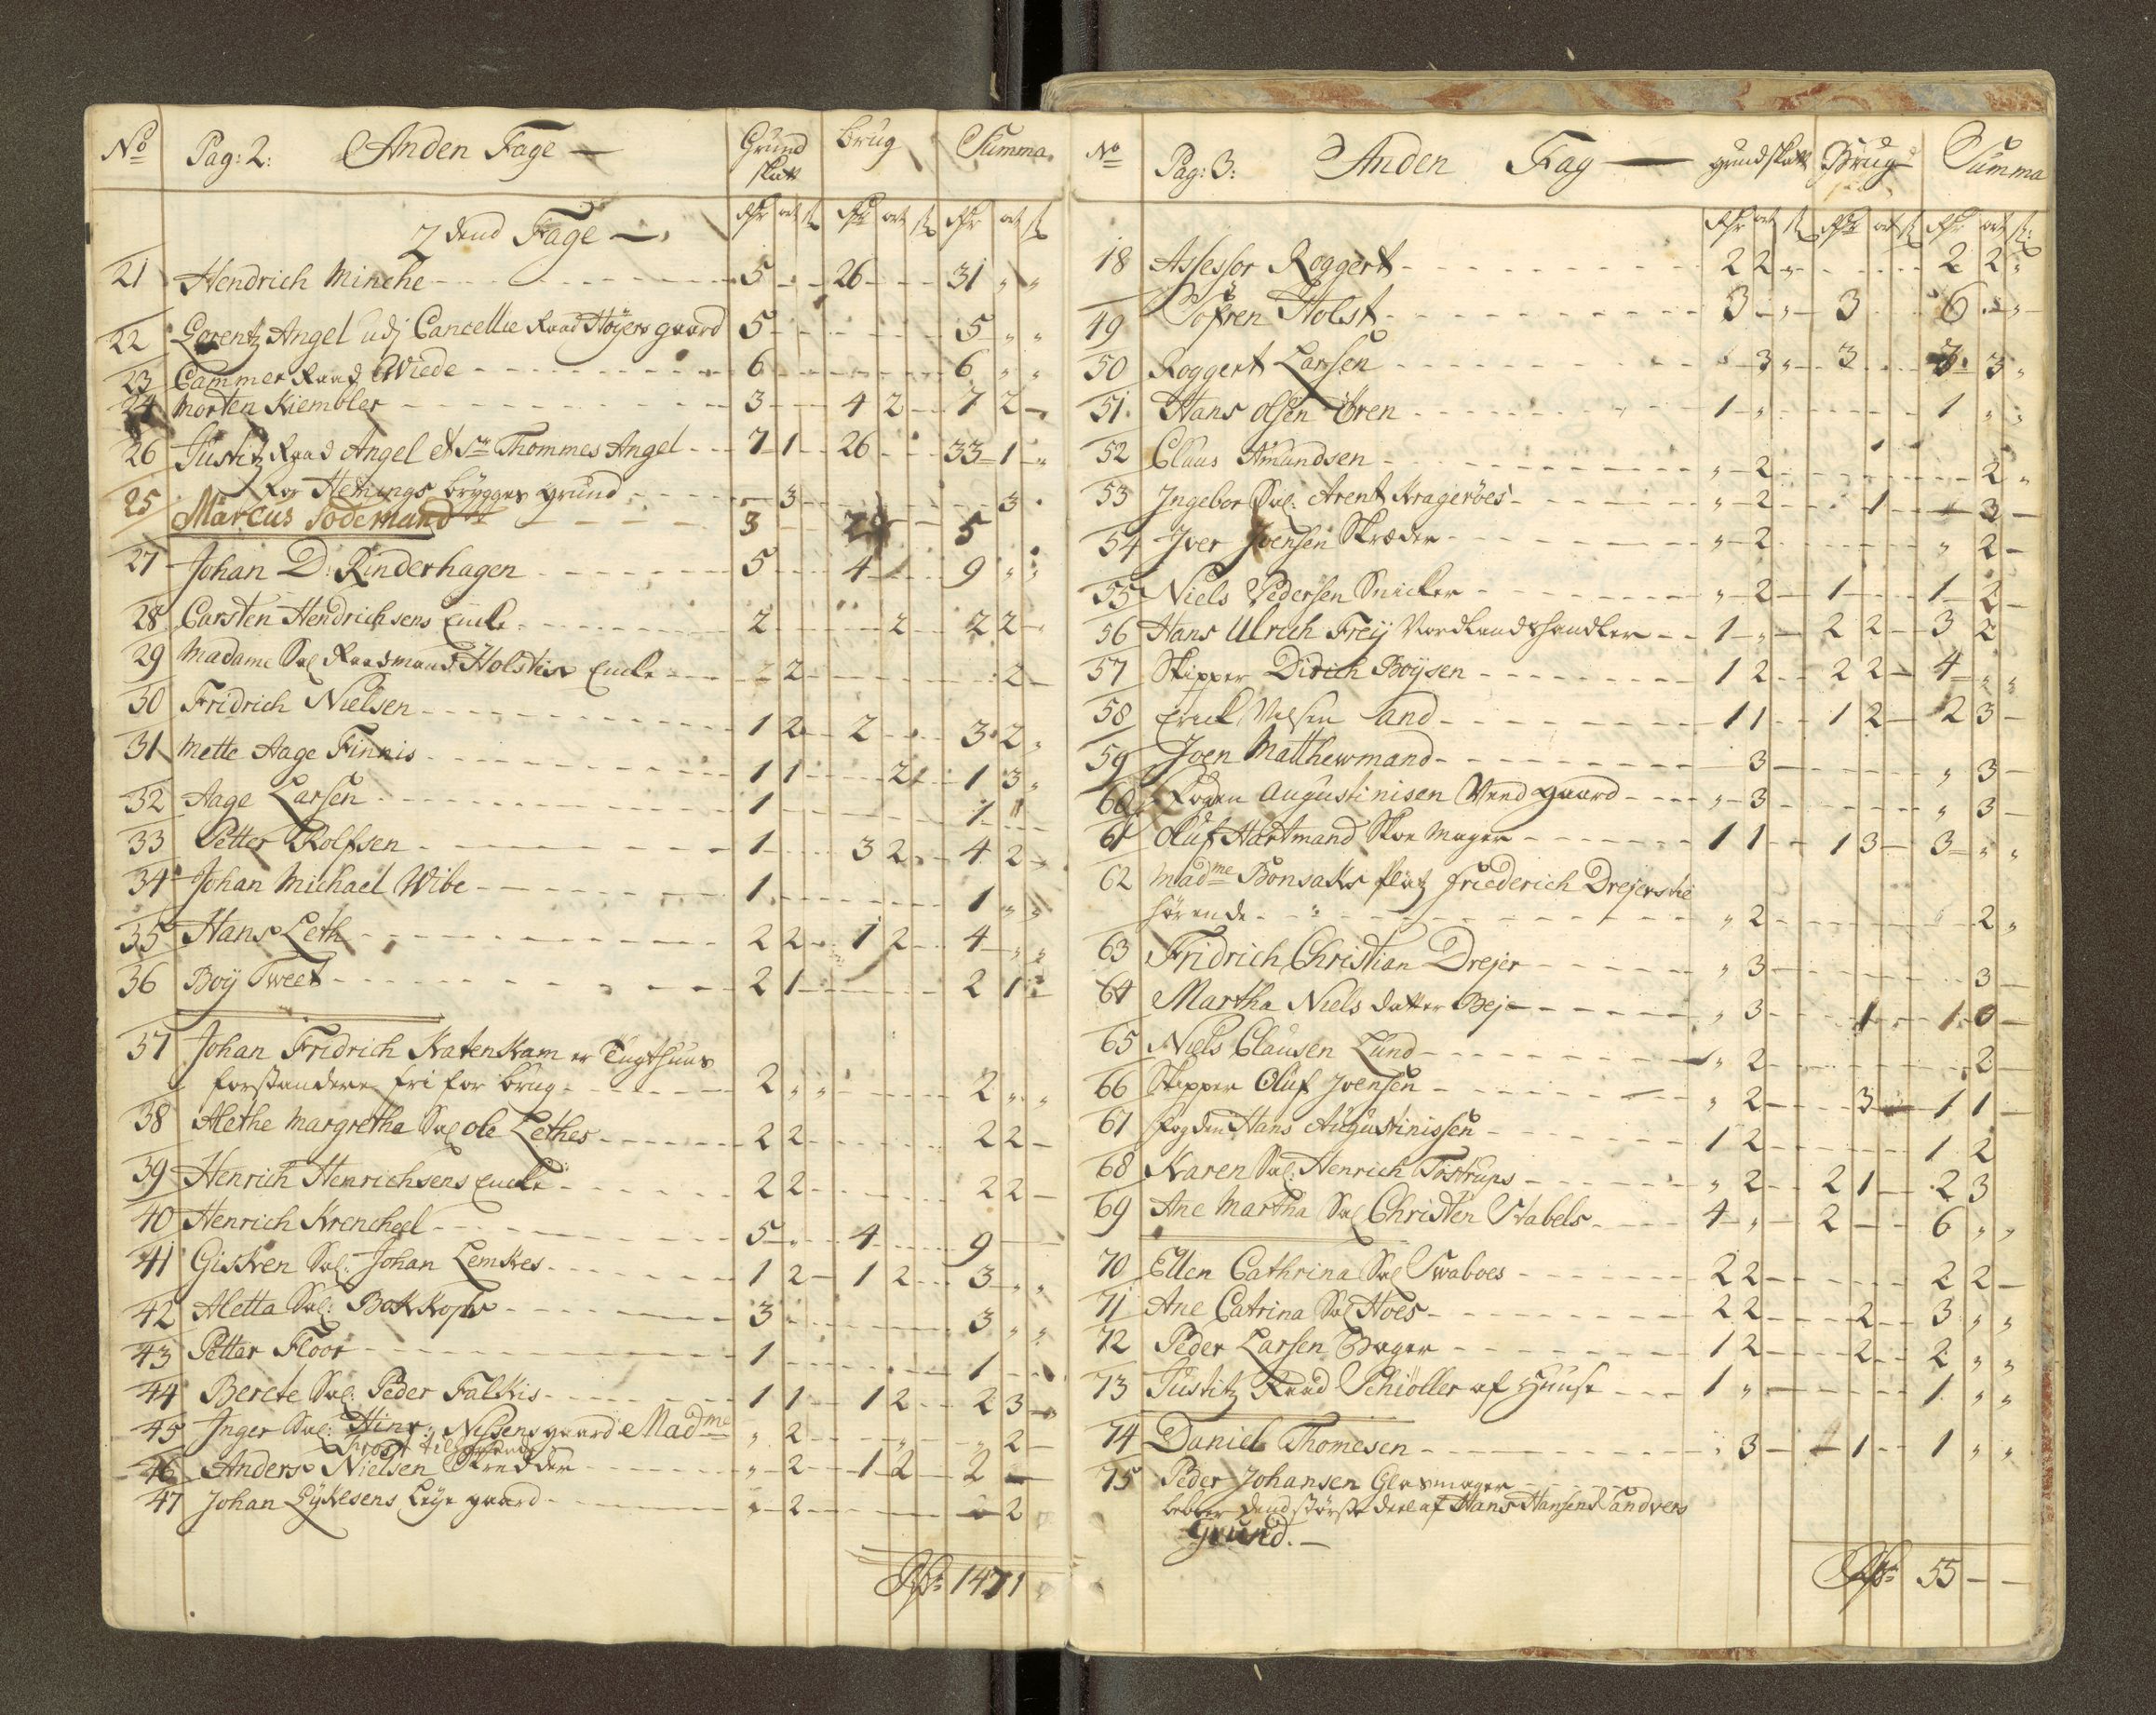 No Pag: 2: Anden Fage — Grund skatt brug Summa
2 dend Fage — Rdr ort s Rdr ort s Rdr ort s
21 Hendrich Minche 5 26 31 " "
22 Lorentz Angel udj Cancellie Raad Höyers gaard 5 5 " "
23 Cammer Raad Wiede 6 6 " "
24 Morten Kiembler 3 4 2 7 2 -
26 Justitz Raad Angel et Sr Thommes Angel 7 1 26 33 1 "
for Hemings brygges grund 3 3
25 Marcus Södermand 3 2 5
27 Johan D: Rinderhagen 5 4 9 " "
28 Carsten Hendrichsens Encke 2 2 2 2
29 Madame Sal Raadmand Holstes Encke 2 2
30 Fridrich Nielsen 1 2 2 3 2 "
31 Mette Aage Finnis 1 1 2 1 3 "
32 Aage Larsen 1 1
33 Petter Rolfsen 1 3 2 4 2
34 Johan Michael Wibe 1 1 " "
35 Hans Leth 2 2 1 2 4 " "
36 Boy Tweet 2 1 2 1
37 Johan Fridrich Katenkam er Tugthuus
forstandere fri for brug 2 " " 2 " "
38 Alethe Margrethe Sal Ole Lethes 2 2 2 2 -
39 Henrich Henrichsens Encke 2 2 2 2 -
40 Henrich Krencheel 5 4 9
41 Gisken Sal: Johan Lemkes 1 2 1 2 3 " "
42 Aletta Sal: Bokkops 3 3 " "
43 Petter Floor 1 1
44 Berete Sal: Peder Falkis 1 1 1 2 2 3
45 Inger Sal: Hinr: Nilsens gaard Madme " 2 " " 2 -
Frost tilhörende
46 Anders Nielsen Skredder " 2 1 2 2
47 Johan Lykkesens Leye gaard 2 2
Rdr 147 1
No Pag: 3: Anden Fag — grundskatt Brug Summa
Rdr ort s Rdr ort s Rdr ort s
18 Assessor Roggert 2 2 " 2 2 "
49 Söfren Holst 3 " 3 6 " "
50 Roggert Larsen 3 " 3 3 3 "
51 Hans Olsen Ören 1 " 1 " "
52 Claus Amundsen " 2 2 "
53 Ingebor Sal: Arent Krageröes " 2 1 3 -
54 Iver Joensen Skræder " 2 " 2 -
55 Niels Pedersen Snicker " 2 1 1 2 -
56 Hans Ulrich Frey Nordlandshandler 1 " 2 2 3 2
57 Skipper Dirich Boysen 1 2 2 2 4 " "
58 Erick Nilsen Sand 1 1 1 2 2 3 -
59 Joen Matthewmand 3 " 3 -
60 Fogden Augustinisen Vend gaard " 3 " 3 -
61 Oluf Hartmand Skoe Mager 1 1 1 3 3 " "
62 Madme Bonsaks platz Friederich Drejer tie
hörende " 2 2 "
63 Fridrich Christian Drejer " 3 3 -
64 Martha Niels datter Beje " 3 1 1 0 -
65 Niels Clausen Lund " 2 2 -
66 Skipper Oluf Joensen " 2 3 1 1 -
67 Fogden Hans Augustinissen 1 2 1 2
68 Karen Sal: Henrich Tostrups " 2 2 1 2 3
69 Ane Martha Sal Christen Stabels 4 " 2 6 " "
70 Ellen Cathrina Sal Swaboes 2 2 2 2 -
71 Ane Catrina Sal Hoes 2 2 2 3 " "
72 Peder Larsen Bager 1 2 2 2 " "
73 Justitz Raad Schiöller af Huuse 1 " 1 " "
74 Daniel Thomesen " 3 1 1 " "
75 Peder Johansen Glasmager
beboer dend störste deel af Hans Hansens Sandvers
Grund. —
Rdr 55 - -